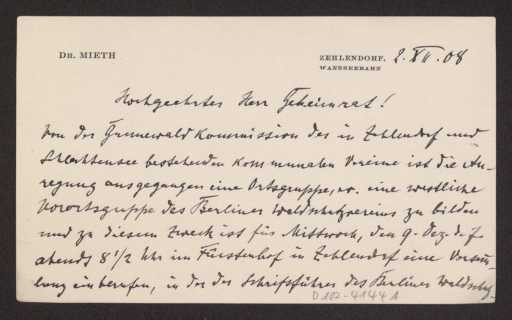 DR. MIETH
ZEHLENDORF, 2. XII. 08
WANNSEEBAHN
Hochgeehrter Herr Geheimrat!
Von der Grunewald Kommission des in Zehlendorf und
Schlachtensee bestehenden kommunalen Vereine ist die An-
regung ausgegangen eine Ortsgruppe, ev. eine westliche
Vorortsgruppe des Berliner Waldschutzvereins zu bilden
und zu diesem Zweck ist für Mittwoch, den 9. Dez. d. J.
abends 8 1/2 Uhr im Fürstenhof in Zehlendorf eine Versamm-
lung einberufen, in der der Schriftführer des Berliner Waldschtz.
D 102-4144 A